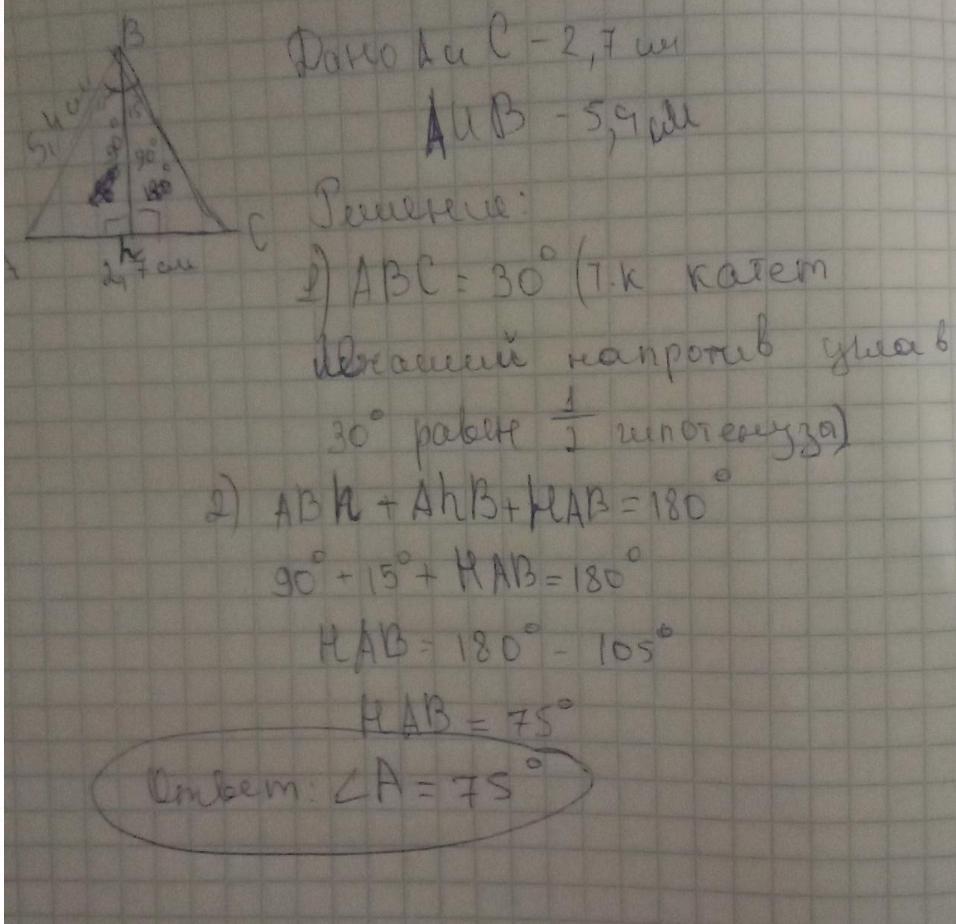 B
Дано A и C - 2,7 см
A и B - 5,4 см
15°
90°
C
h
2,7 см
Решение:
1) ABC = 30° (т.к катет
лежащий напротив угла в
30° равен 1/2 гипотенузы)
2) ABh + AhB + HAB = 180°
90° + 15° + HAB = 180°
HAB = 180° - 105°
HAB = 75°
Ответ: ∠A = 75°